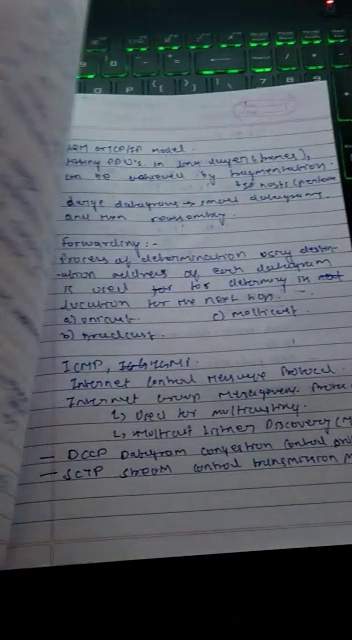 OSM or TCP/IP model.
taking PDU's in link layer (frames),
can be achieved by fragmentation.
IP hosts (perform
large datagrams → small datagrams
and then reassembly.
Forwarding :-
Process of determination using destin-
-ation address of each datagram
is used for determining in
location for the next hop.
a) Unicast c) Multicast.
b) Broadcast.
ICMP, IGMP.
Internet Control Message Protocol.
Internet Group Management
↳ Used for multicasting.
↳ Multicast Listner Discovery (M
— DCCP Datagram Congestion Control
— SCTP Stream Control Transmission